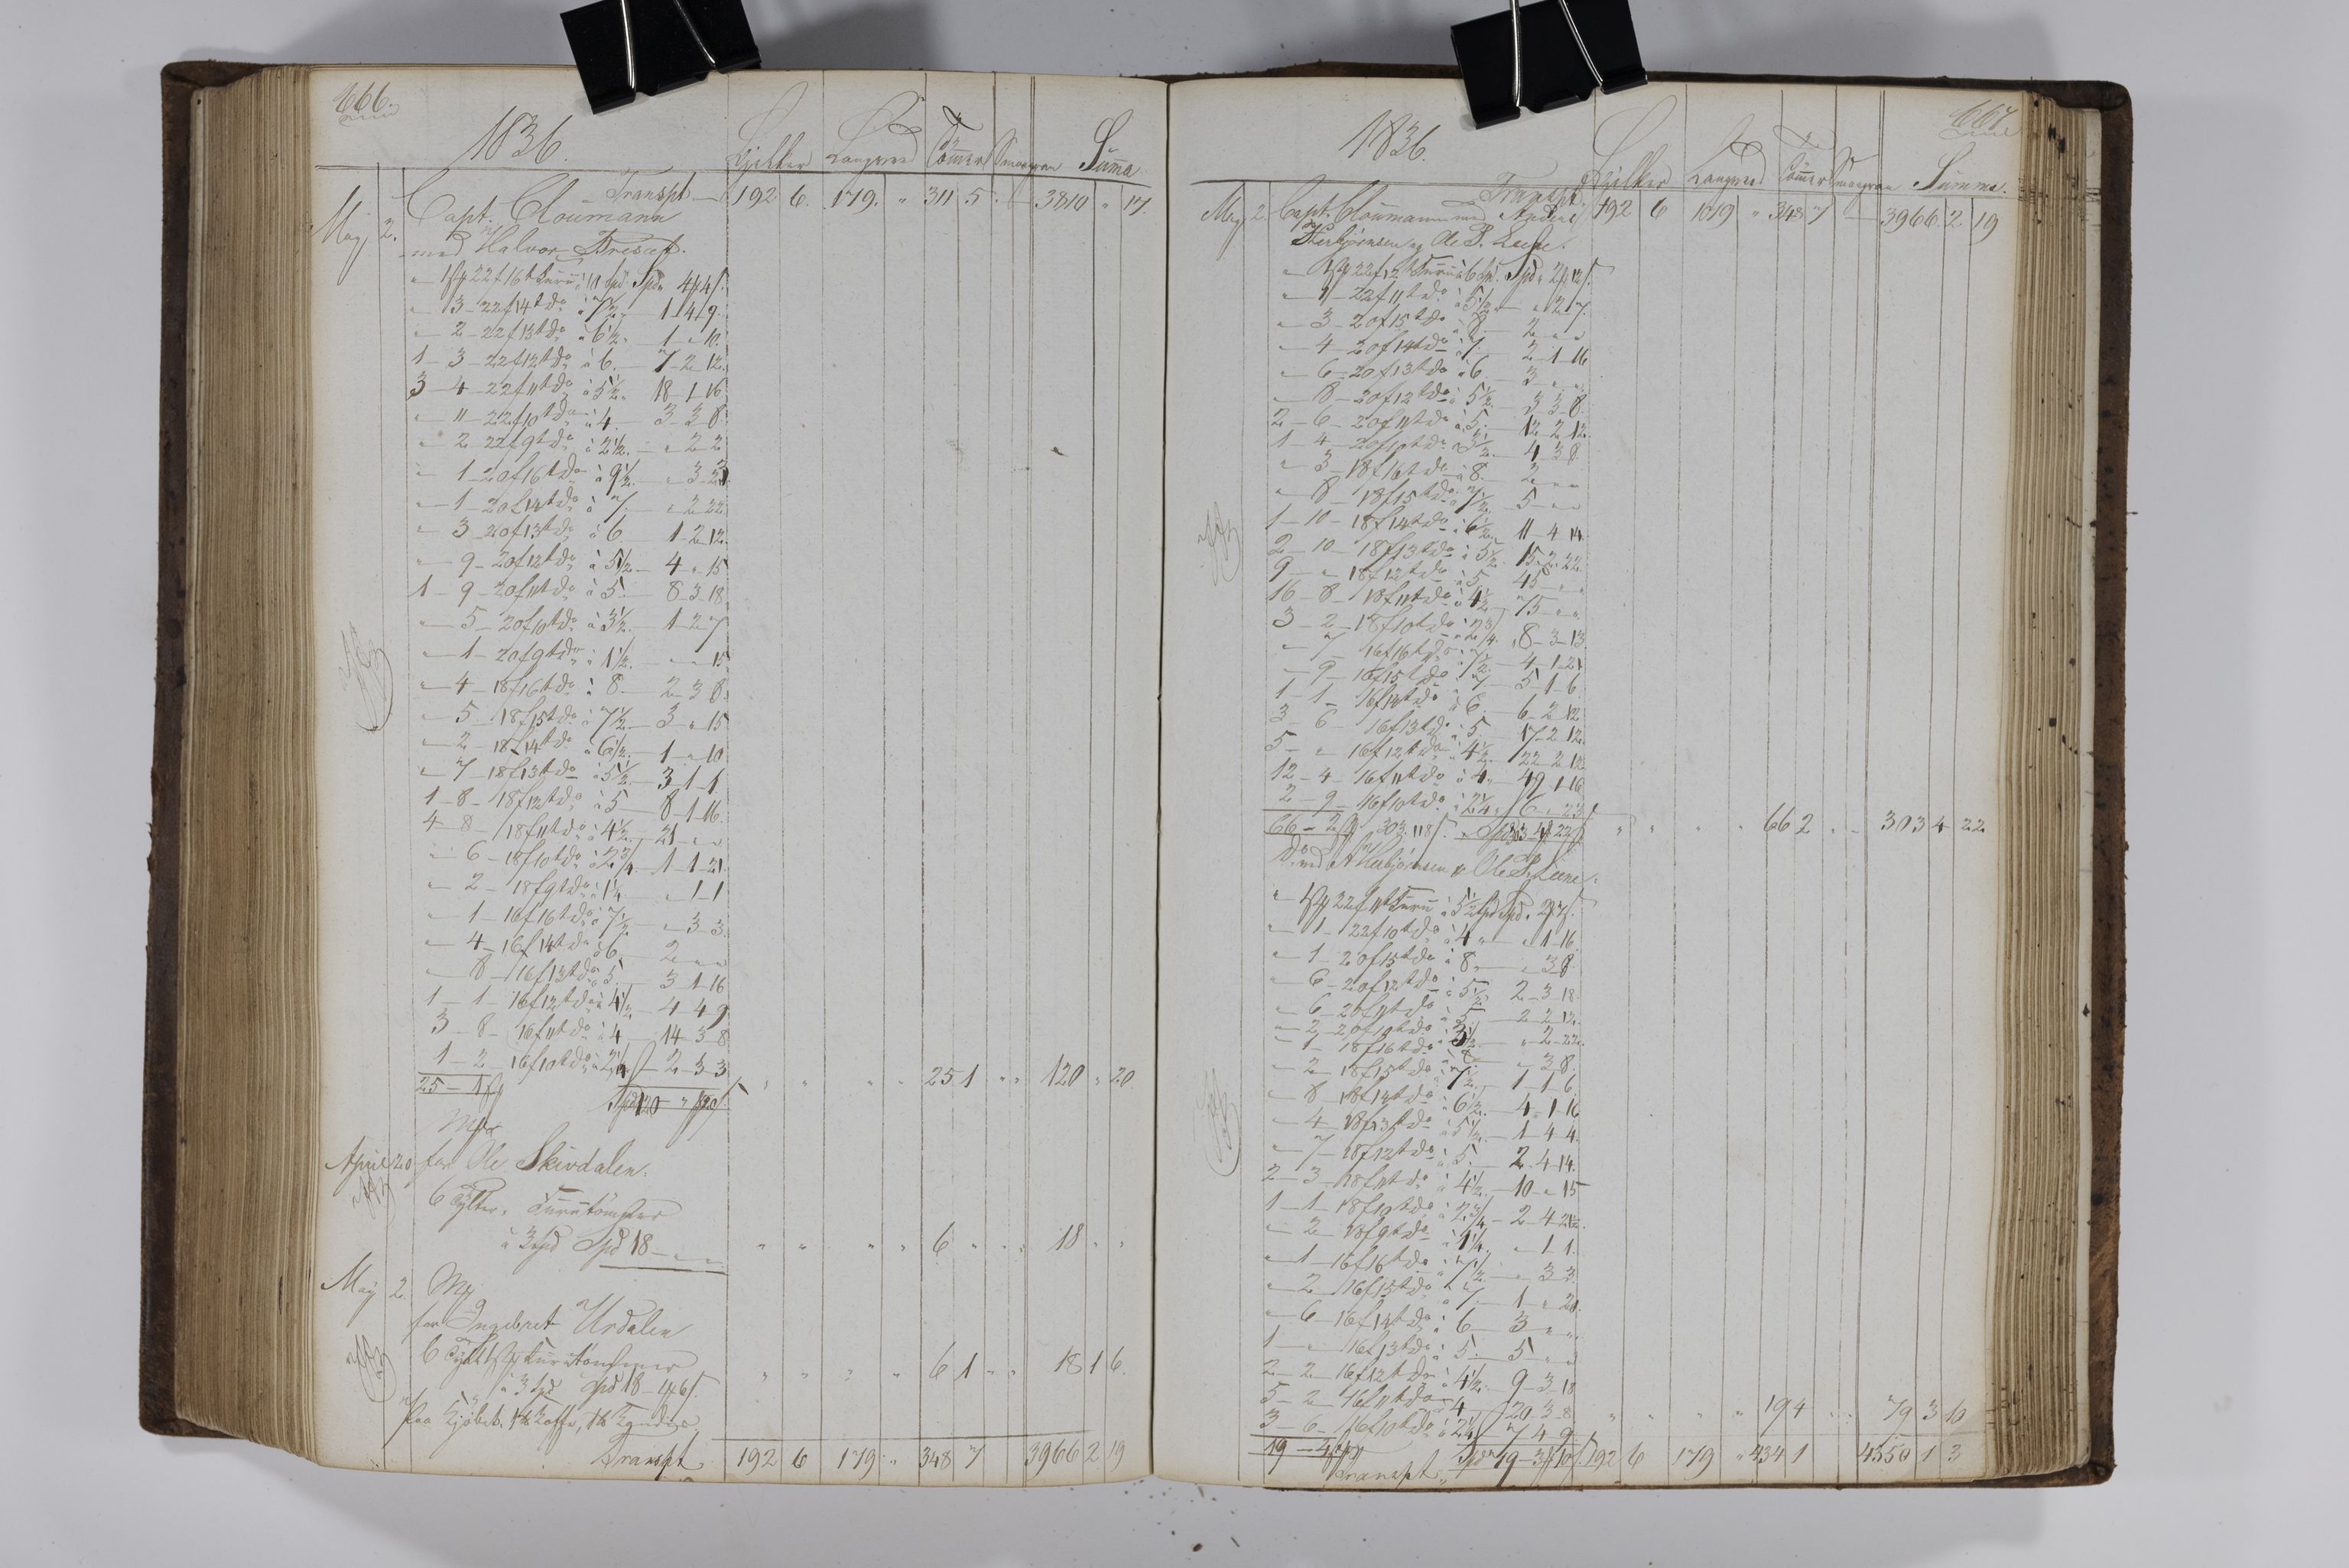 666.
1836. Bjelker Langved Tömmer Smaagran Summa
Transpt 192 6. 179. " 311 5 3810 " 17.
May 2. Capt. Cloumann
med Halvor
" 1st 22f 16t Furu à 10 Spd. Spd " 4 # 4 s.
" 3 - 22f 14t do à 7½ 1 - 4 - 9.
" 2 - 22f 13t do à 6½ 1 - " - 10.
1 - 3 - 22f 12t do à 6. 7 - 2 - 12.
3 - 4 - 22f 11t do à 5½. 18 - 1 - 16
" 11 - 22f 10t do à 4. 3 - 3 - 8.
" 2 - 22f 9t do à 2½. " 2 - 2
" 1 - 20f 16t do à 9½. " 3 - 23
" 1 - 20f 14t do à 7. " 2 - 22
" 3 - 20f 13t do à 6. 1 - 2 - 12.
" 9 - 20f 12t do à 5½ 4 - " - 15
1 - 9 - 20f 11t do à 5. 8 - 3 - 18.
" 5 - 20f 10t do à 3½. 1 - 2 - 7
" 1 - 20f 9t do à 1½. " - " - 15
" 4 - 18f 16t do à 8. 2 - 3 - 8.
" 5 - 18f 15t do à 7½ 3 - " - 15
" 2 - 18f 14t do à 6½. 1 - " - 10
" 7 - 18f 13t do à 5½. 3 - 1 - 1.
1 - 8 - 18f 12t do à 5 8 - 1 - 16.
4 - 8 - 18f 11t do à 4½. 21 - " - "
" 6 - 18f 10t do à 2¾. 1 - 1 - 21.
" 2 - 18f 9t do à 1¼ " 1 - 1
" 1 - 16f 16t do à 7½ " 3 - 3.
" 4 - 16f 14t do à 6. 2 - " - "
" 8 - 16f 13t do à 5. 3 - 1 - 16
1 - 1 - 16f 12t do à 4½ 4 - 4 - 9
3 - 8 - 16f 11t do à 4 14 - 3 - 8
1 - 2 - 16f 10t do à 2¼ 2 - 3 - 3
25 - 1 Spd 120 - " # 20 s. " " " " 25 1 " " 120 " 20
April 20 for Ole Skirdalen.
6 Tylter Furutömmer
à 3 Spd Spd 18 - " - " " " " " 6 " " " 18 " "
May 2. for Ingebret Urdalen
6 Tylt 1 st Furutömmer
à 3 Spd Spd 18 - 1 # 6 s. " " " " 6 1 " " 18 1 6.
Transpt. 192 6 179 " 348 7 3966 2 19
667
1836. Bjelker Langved Tömmer Smaagran Summa.
Transpt. 192 6 179 " 348 7 3966 2 19
May 2. Capt. Cloumann med Anders
Herbjörnsen og Ole P. Leene.
" 1st 22f 12t Furu à 6 Spd. Spd " 2 # 12 s.
" 1 - 22f 11t do à 5½ " 2 - 7.
" 3 - 20f 15t do à 8. 2 - " - "
" 4 - 20f 14t do à 7. 2 - 1 - 16
" 6 - 20f 13t do à 6. 3 - " - "
" 8 - 20f 12t do à 5½. 3 - 3 - 8.
2 - 6 - 20f 11t do à 5. 12 - 2 - 12.
1 - 4 - 20f 10t do à 3½. 4 - 3 - 8
" 3 - 18f 16t do à 8. 2 - " - "
" 8 - 18f 15t do à 7½. 5 - " - "
1 - 10 - 18f 14t do à 6½. 11 - 4 - 14.
2 - 10 - 18f 13t do à 5½. 15 - 2 - 22.
9 - " - 18f 12t do à 5. 45 - " - "
16 - 8 - 18f 11t do à 4½. 75 - " - "
3 - 2 - 18f 10t do à 2¾. 8 - 3 - 13.
" 7 - 16f 16t do à 7½ 4 - 1 - 21
" 9 - 16f 15t do à 7 5 - 1 - 6.
1 - 1 - 16f 14t do à 6. 6 - 2 - 12
3 - 6 - 16f 13t do à 5. 17 - 2 - 12.
5 - " - 16f 12t do à 4½. 22 - 2 - 12.
12 - 4 - 16f 11t do à 4. 49 - 1 - 16
2 - 9 - 16f 10t do à 2¼. 6 - " - 23
66 - 2 Spd 303 - 4 # 22 s. " " " " 66 2 " " 303 4 22
Do med A Herbjörnsen & Ole P. Leene.
" 1st 22f 11t Furu à 5½ Spd Spd " 2 # 7 s.
" 1 - 22f 10t do à 4 " 1 - 16.
" 1 - 20f 15t do à 8. " 3 - 8.
" 6 - 20f 12t do à 5½ 2 - 3 - 18.
" 6 - 20f 11t do à 5. 2 - 2 - 12.
" 2 - 20f 10t do à 3½ " 2 - 22.
" 1 - 18f 16t do à 8 " 3 - 8.
" 2 - 18f 15t do à 7½. 1 - 1 - 6.
" 8 - 18f 14t do à 6½. 4 - 1 - 16
" 4 - 18f 13t do à 5½. 1 - 4 - 4.
" 7 - 18f 12t do à 5. 2 - 4 - 14.
2 - 3 - 18f 11t do à 4½. 10 - " - 15
1 - 1 - 18f 10t do à 2¾ 2 - 4 - 22.
" 2 - 18f 9t do à 1¼. " 1 - 1.
" 1 - 16f 16t do à 7½. " 3 - 3.
" 2 - 16f 15t do à 7. 1 - " - 20.
" 6 - 16f 14t do à 6 3 - " - "
1 - " - 16f 13t do à 5. 5 - " - "
2 - 2 - 16f 12t do à 4½. 9 - 3 - 18
5 - 2 - 16f 11t do à 4 20 - 3 - 8
3 - 6 - 16f 10t do à 2¼ 7 - 4 - 9.
19 - 4 Spd 79 - 3 # 10 s. " " " " 19 4 " " 79 3 10
Transpt. 192 6 179 " 434 1 4350 1 3